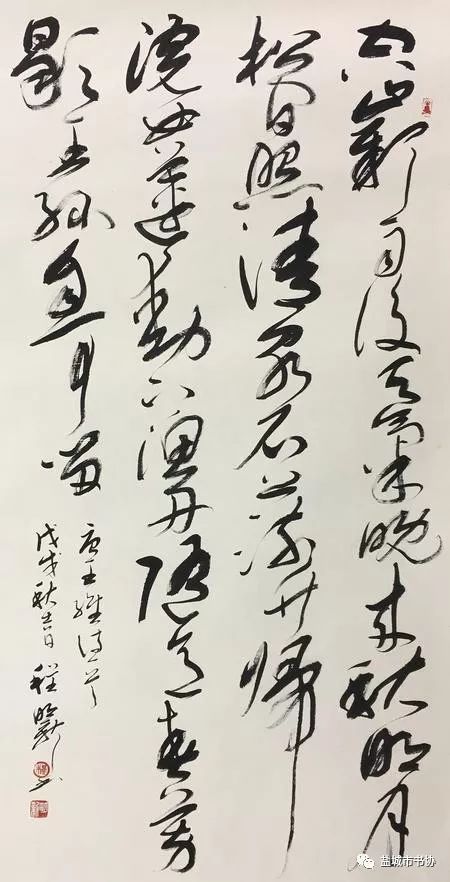 空山新雨後天氣晚来秋明月
松間照清泉石上流竹歸
浣女蓮動下漁舟随意春芳
歇王孫自可留
唐王維詩一首
戊戌秋吉日程
盐城市书协